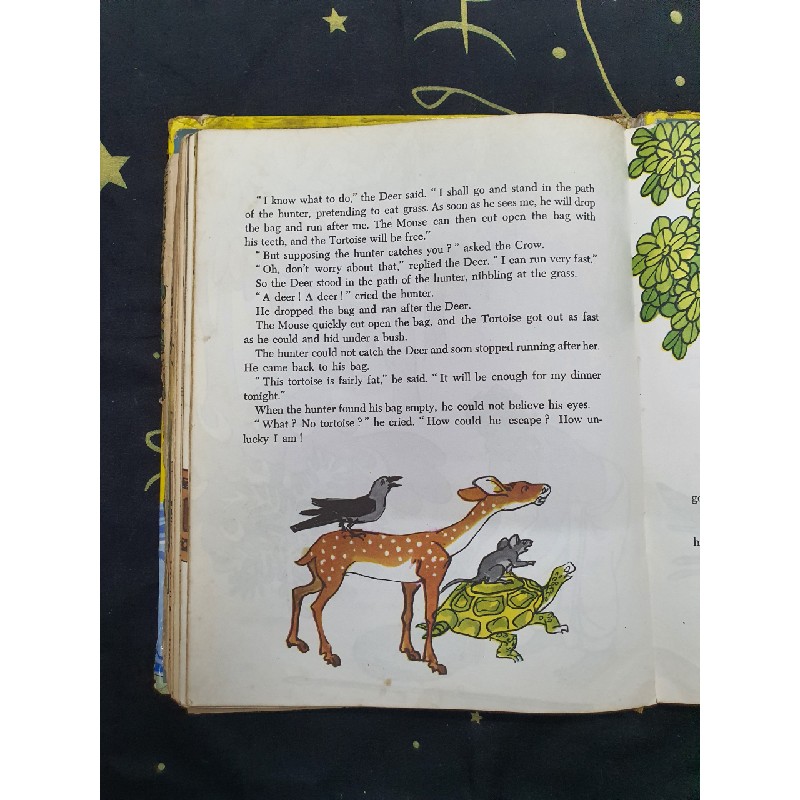 "I know what to do," the Deer said. "I shall go and stand in the path
of the hunter, pretending to eat grass. As soon as he sees me, he will drop
the bag and run after me. The Mouse can then cut open the bag with
his teeth, and the Tortoise will be free."
"But supposing the hunter catches you?" asked the Crow.
"Oh, don't worry about that," replied the Deer. "I can run very fast."
So the Deer stood in the path of the hunter, nibbling at the grass.
"A deer! A deer!" cried the hunter.
He dropped the bag and ran after the Deer.
The Mouse quickly cut open the bag, and the Tortoise got out as fast
as he could and hid under a bush.
The hunter could not catch the Deer and soon stopped running after her.
He came back to his bag.
"This tortoise is fairly fat," he said. "It will be enough for my dinner
tonight."
When the hunter found his bag empty, he could not believe his eyes.
"What? No tortoise?" he cried. "How could he escape? How un-
lucky I am!